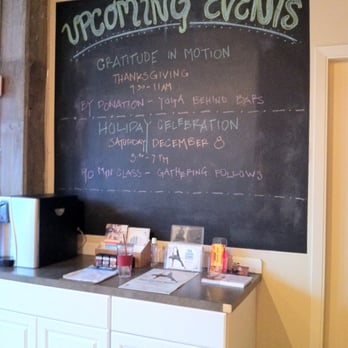 UPCOMING EVENTS
GRATITUDE IN MOTION
THANKSGIVING
9:30-11AM
BY DONATION - YOGA BEHIND BARS
HOLIDAY CELEBRATION
SATURDAY DECEMBER 8
90 MIN CLASS - GATHERING FOLLOWS